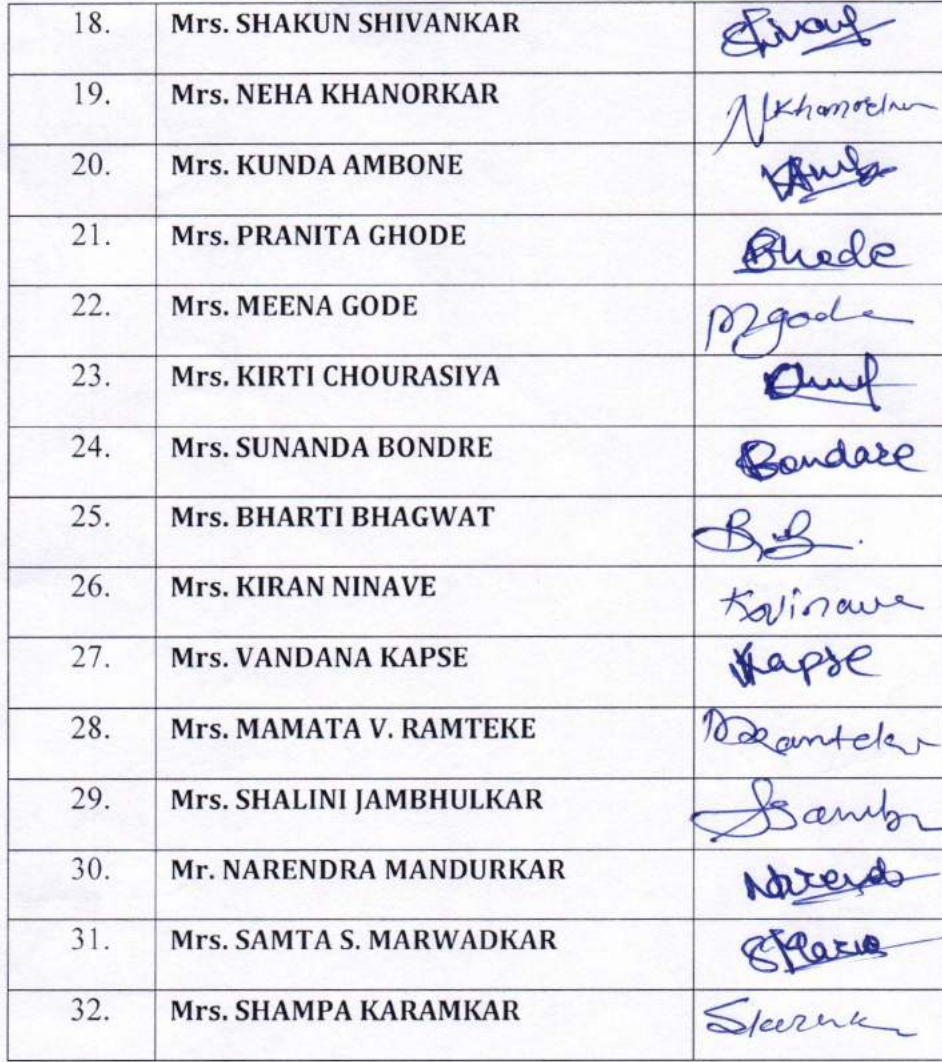 18. Mrs. SHAKUN SHIVANKAR
19. Mrs. NEHA KHANORKAR
20. Mrs. KUNDA AMBONE
21. Mrs. PRANITA GHODE Ghode
22. Mrs. MEENA GODE Mgode
23. Mrs. KIRTI CHOURASIYA
24. Mrs. SUNANDA BONDRE Bondare
25. Mrs. BHARTI BHAGWAT
26. Mrs. KIRAN NINAVE
27. Mrs. VANDANA KAPSE VKapse
28. Mrs. MAMATA V. RAMTEKE
29. Mrs. SHALINI JAMBHULKAR
30. Mr. NARENDRA MANDURKAR
31. Mrs. SAMTA S. MARWADKAR
32. Mrs. SHAMPA KARAMKAR